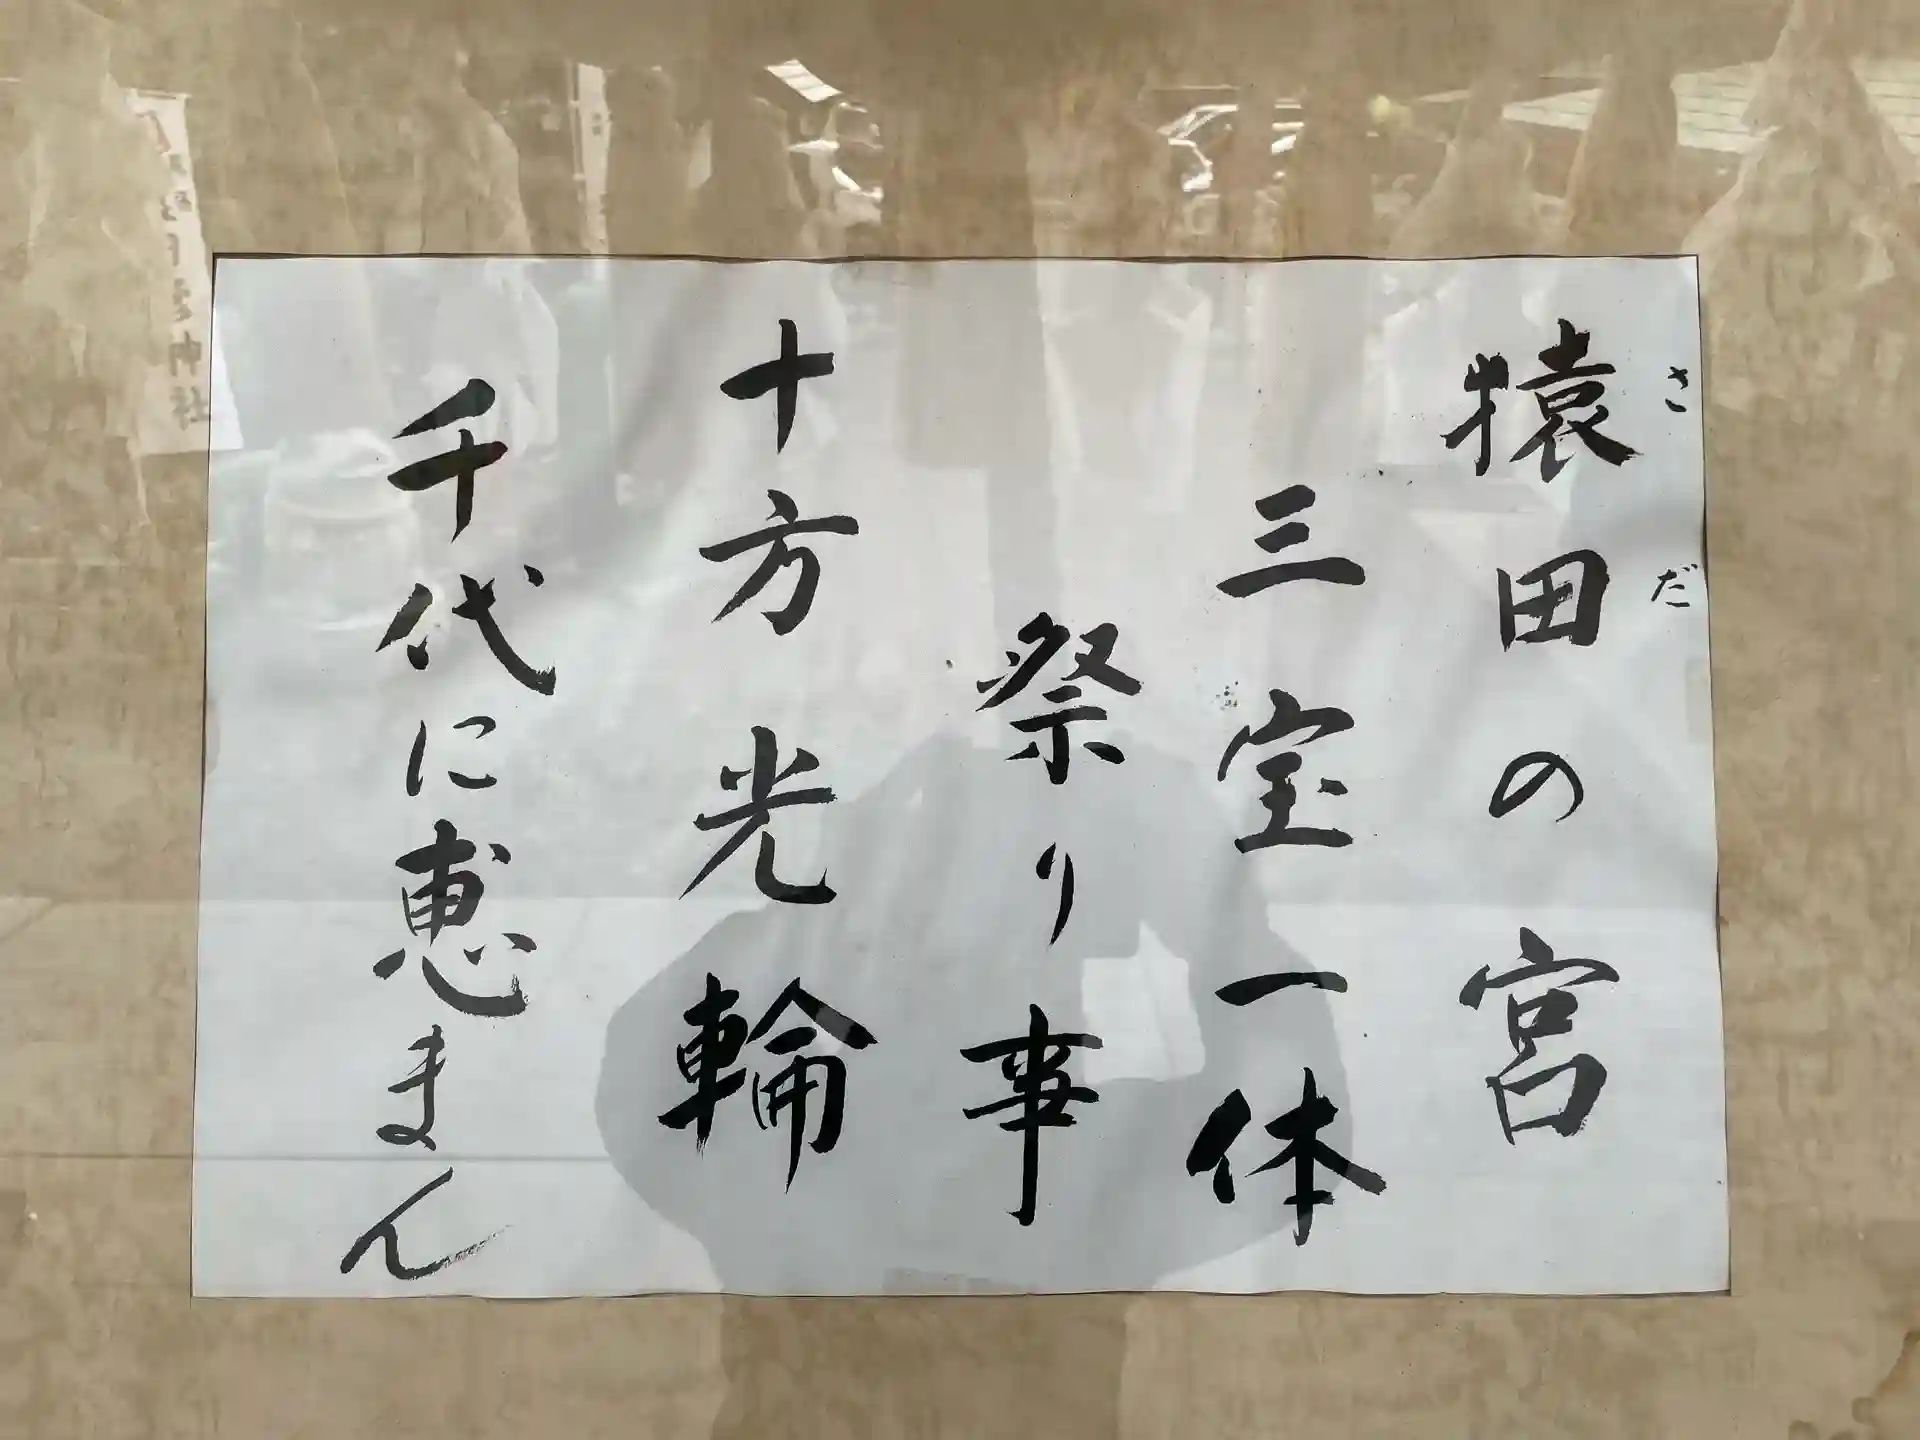 猿田の宮
さだ
三宝一体
祭り事
十方光輪
千代に恵まん
神社